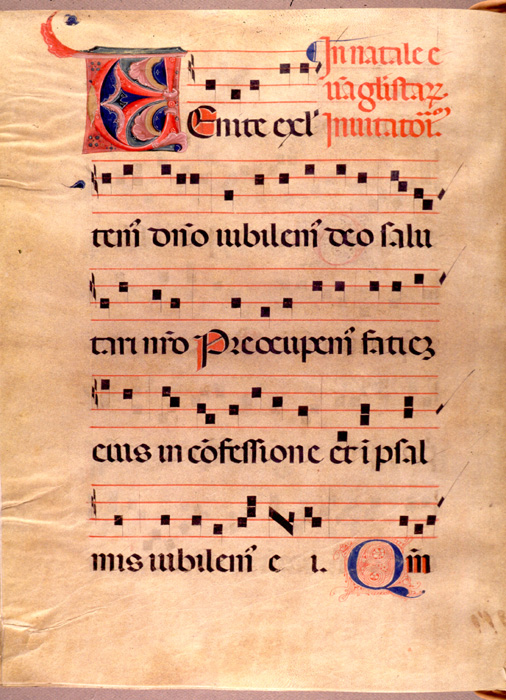 In natale e
uāglistaꝝ
Inuitatoī.
VEnite exl'
tem' dn̄o iubilem' deo salu
tari nr̄o Preocupem' faciez
eius in cōfessione et ī psal
mis iubilem' e i. Qm̄